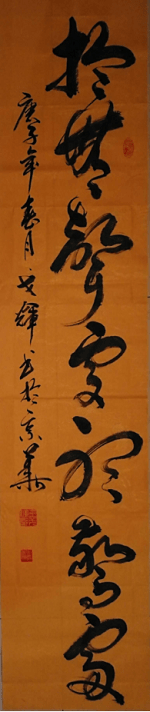 於無聲處聽驚雷
庚子年春月輝书於京華